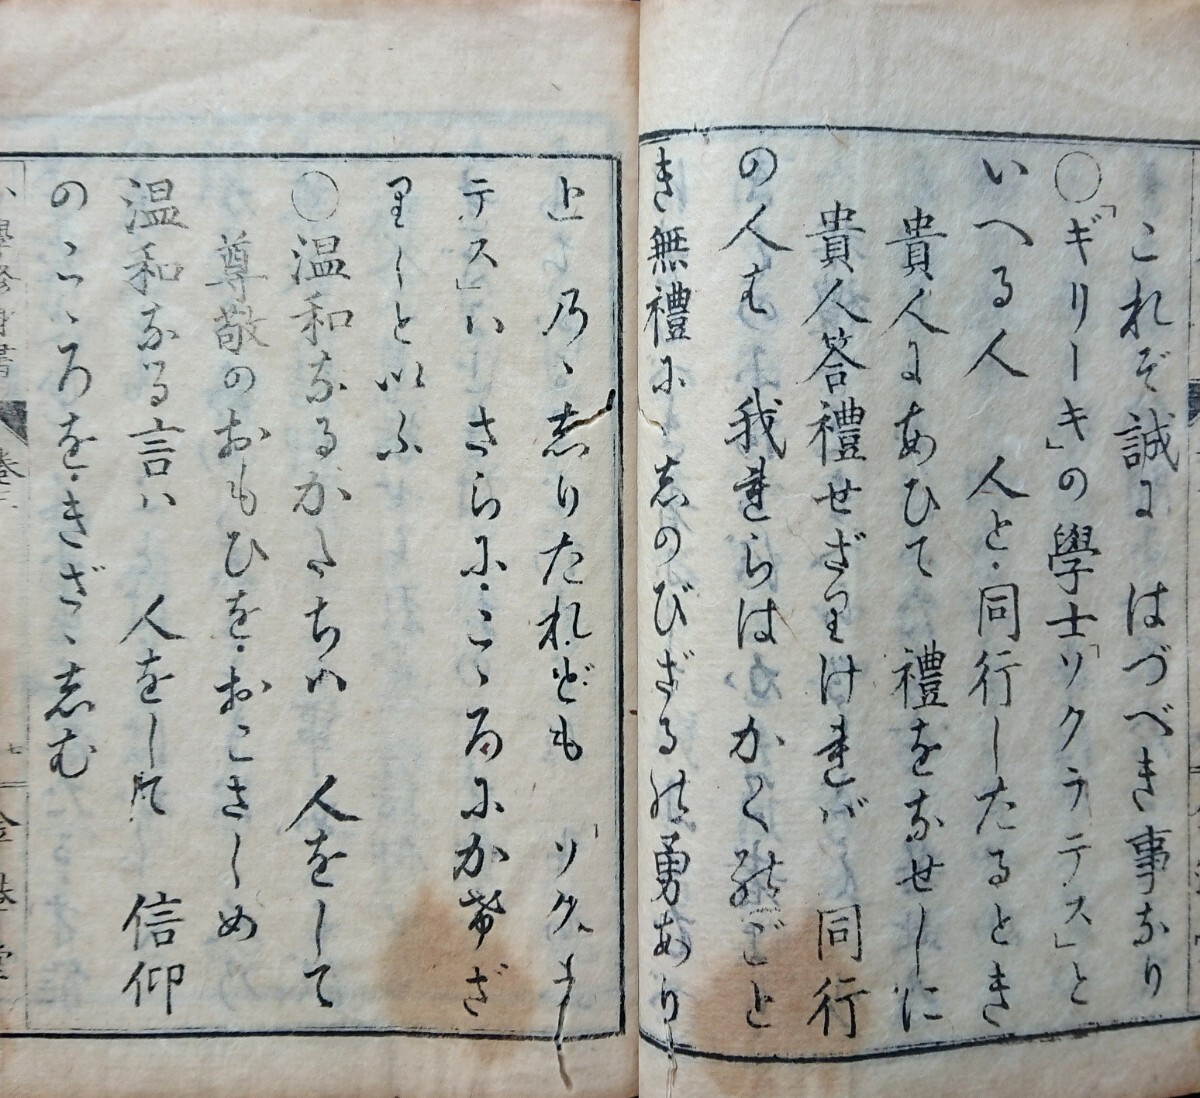 これぞ誠に はづべき事なり
○「ギリーキ」の學士「ソクラテス」と
いへる人 人と同行したるとき
貴人にあひて 禮をなせしに
貴人答禮せざりければ 同行
の人も 我れらは かくのごと
き無禮に しのびざるの勇あり
と のゝしりたれども 「ソクラ
テス」ハ さらに こゝろにかけざ
りしといふ
○温和なるかたちハ 人をして
尊敬のおもひを おこさしめ
温和なる言ハ 人をして 信仰
のこゝろを きざゝしむ
小學修身書 七 金港堂